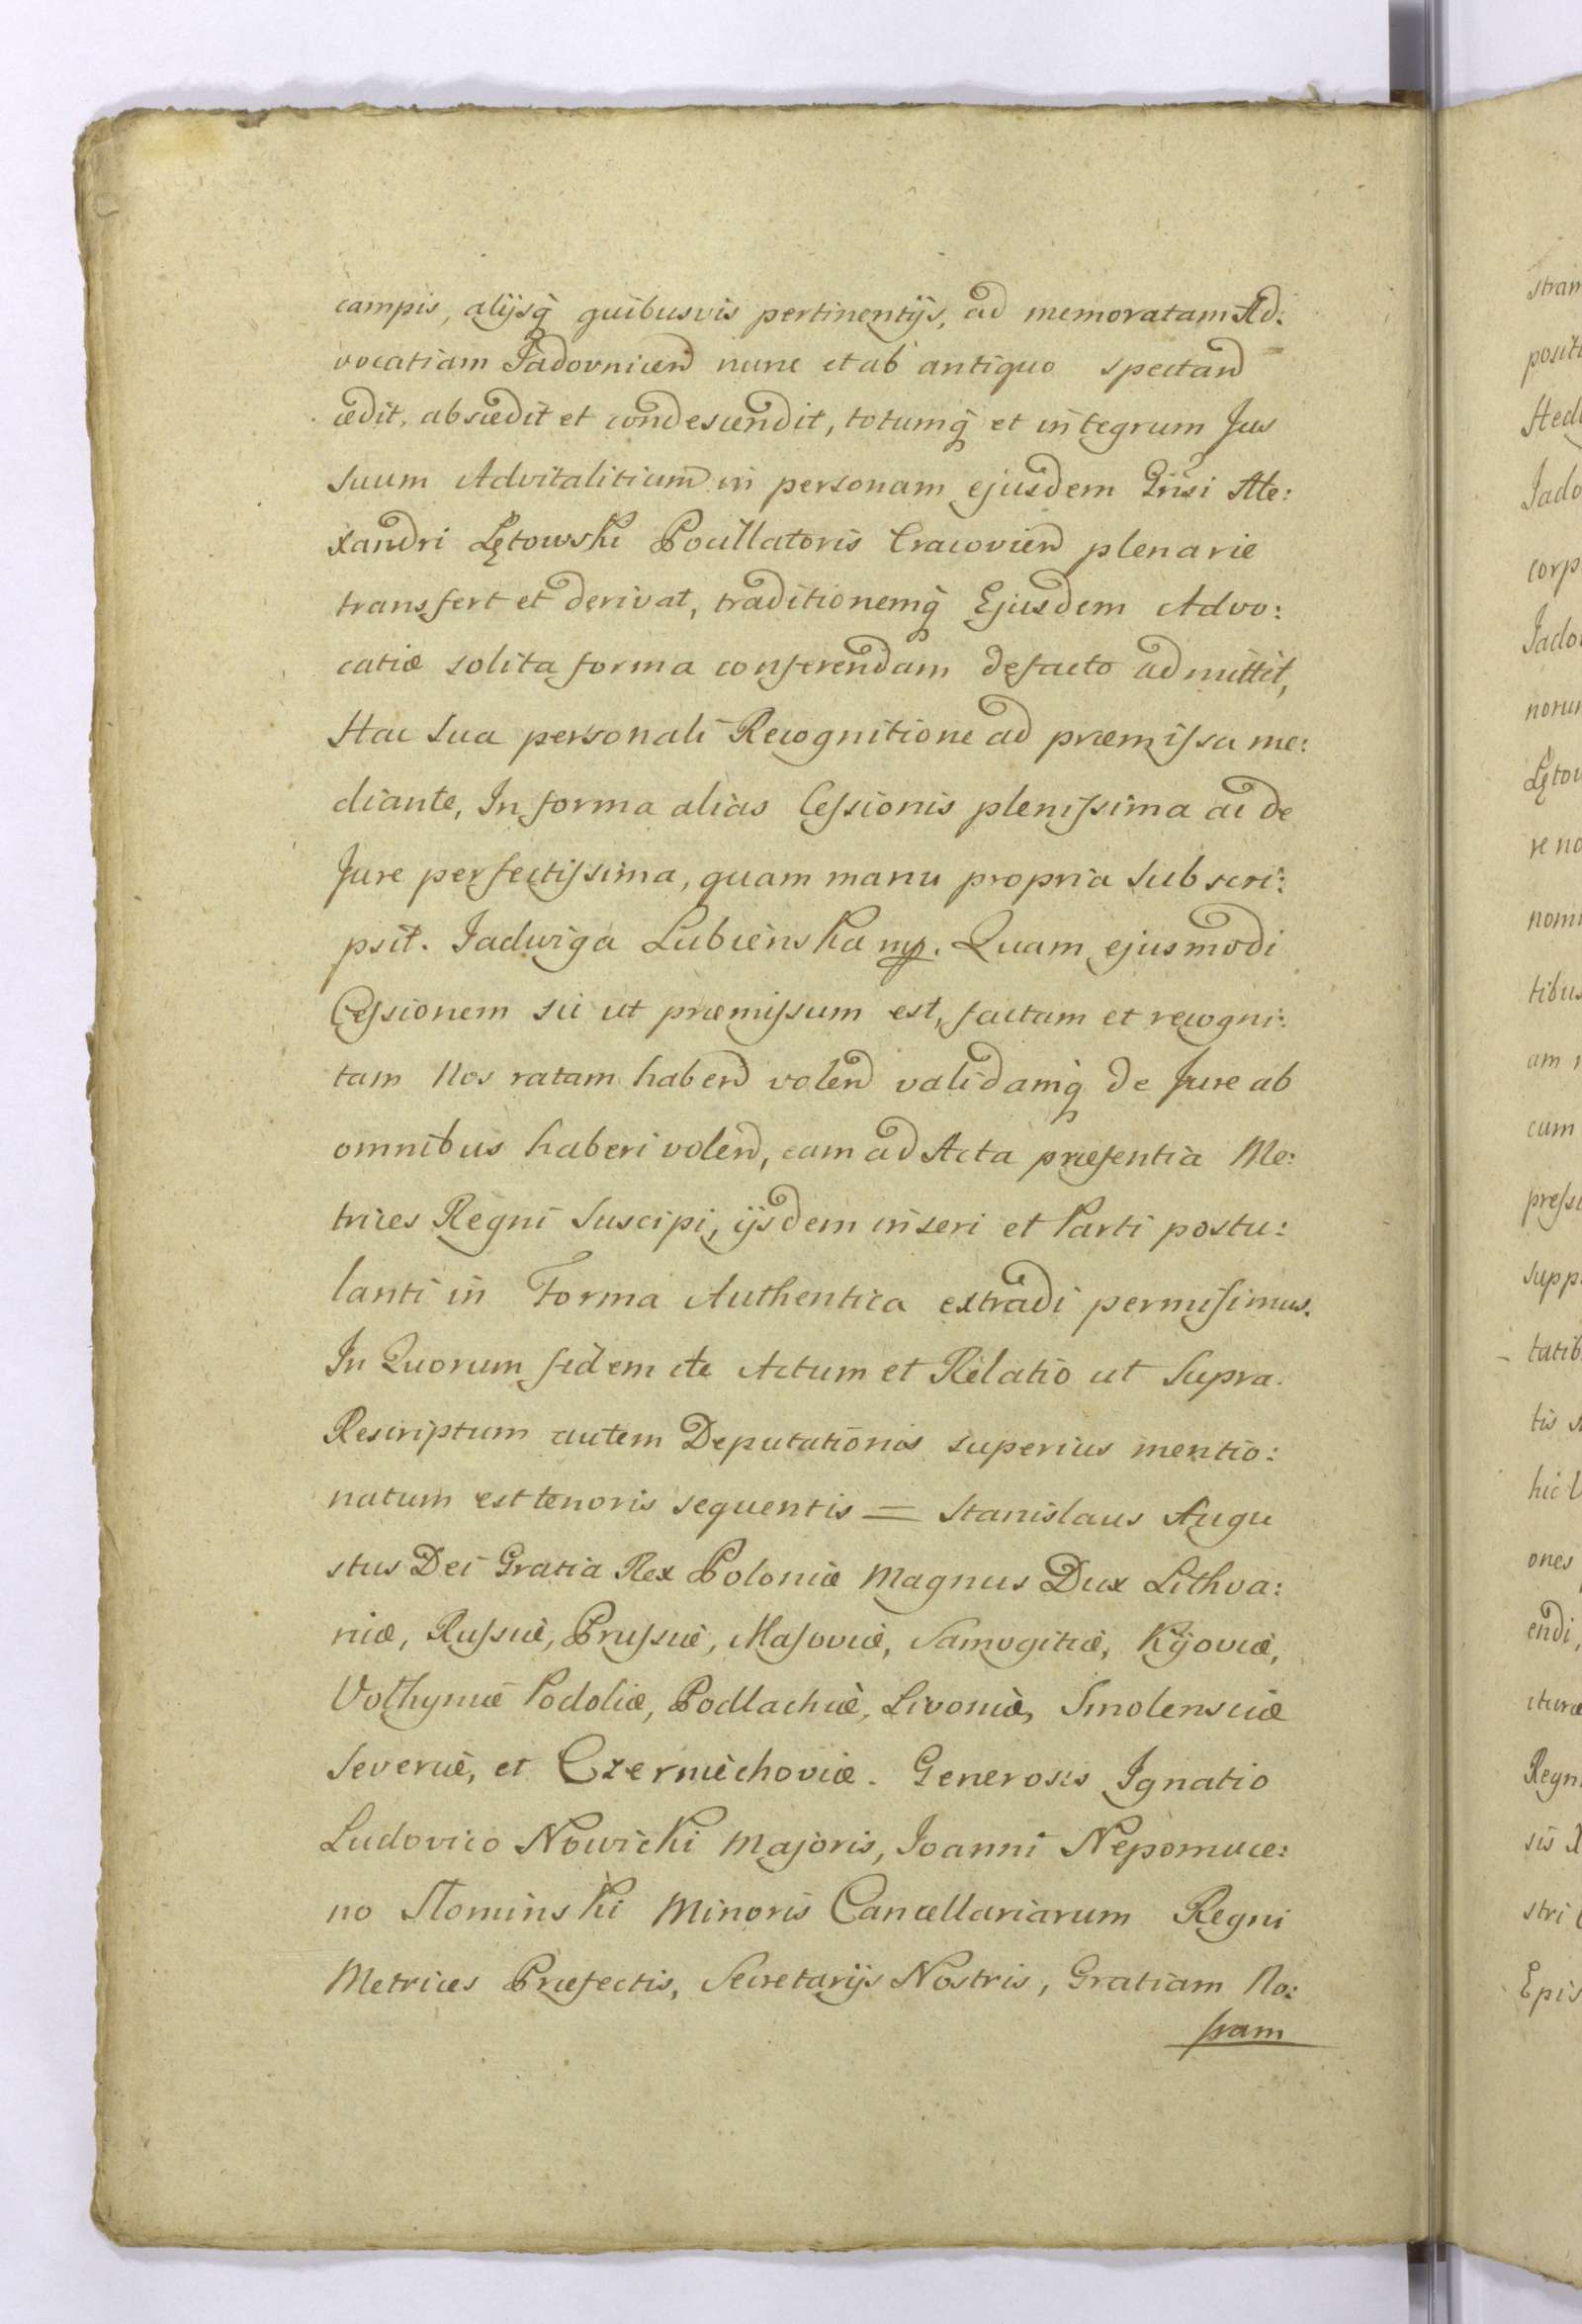 campis, alijsq́ quibusvis pertinentijs, ad memoratam Ad:
vocatiam Jadovnicen nunc et ab antiquo spectan
cedit, abscedit et condescendit, totumq́ et integrum Jus
suum Advitalitium in personam ejusdem Grisi Ale:
xandri Lętowski Pocillatoris Cracovien plenarie
transfert et derivat, traditionemq́ Ejusdem Advo:
catiæ solita forma conferendam defacto admittit,
Hac sua personali Recognitione ad præmissa me:
diante, In forma alias Cessionis plenissima ac de
Jure perfectissima, quam manu propria subscri:
psit. Jadwiga Lubienska mp. Quam ejusmodi
Cessionem sic ut præmissum est, factam et recogni:
tam Nos ratam haben volen validamq́ de Jure ab
omnibus haberi volen, eam ad Acta præsentia Me:
trices Regni Suscipi, ijsdem inseri et Parti postu:
lanti in Forma Authentica extradi permisimus.
In Quorum fidem etc Actum et Relatio ut Supra.
Rescriptum autem Deputationis superius mentio:
natum est tenoris sequentis = Stanislaus Augu
stus Dei Gratia Rex Poloniæ Magnus Dux Lithva:
niæ, Russiæ, Prussiæ, Masoviæ, Samogitiæ, Kijoviæ,
Volhyniæ Podoliæ, Podlachiæ, Livoniæ, Smolensciæ
Severiæ, et Czerniechoviæ. Generosis Ignatio
Ludovico Nowicki Majoris, Joanni Nepomuce:
no Słominski Minoris Cancellariarum Regni
Metrices Præfectis, Secretarijs Nostris, Gratiam No:
stram
stram
posit
Hed
Jado
corp
Jado
norum
Lętow
re no
nomi
tibus
am
cum
press
supp
tatib
tis s
hic
ones
endi,
cturæ
Regn
sis
stri
Epis